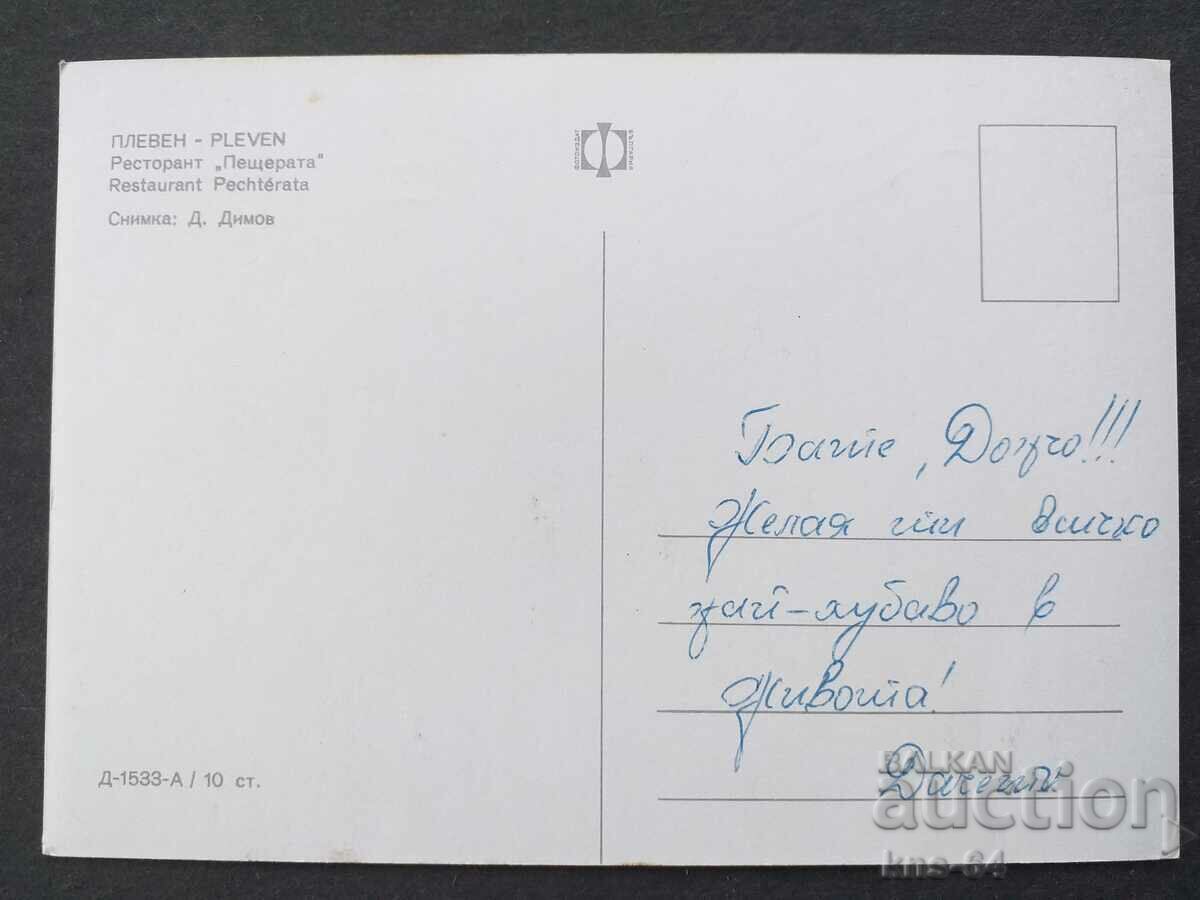 ПЛЕВЕН - PLEVEN
Ресторант „Пещерата“
Restaurant Pechtérata
Снимка: Д. Димов
Бате, Дончо!!!
Желая ти всичко
най-хубаво в
живота!
Д-1533-А / 10 ст.
BALKAN
auction
kns-64